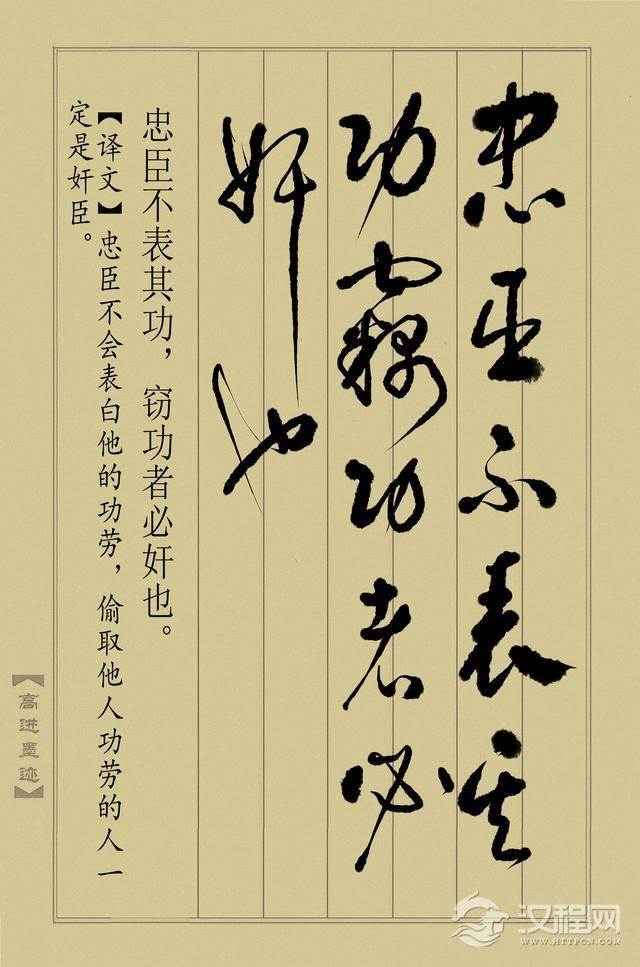 忠臣不表其
功窃功者必
奸也
忠臣不表其功，窃功者必奸也。
【译文】忠臣不会表白他的功劳，偷取他人功劳的人一
定是奸臣。
【高进墨迹】
汉程网
WWW.HTTPCN.COM